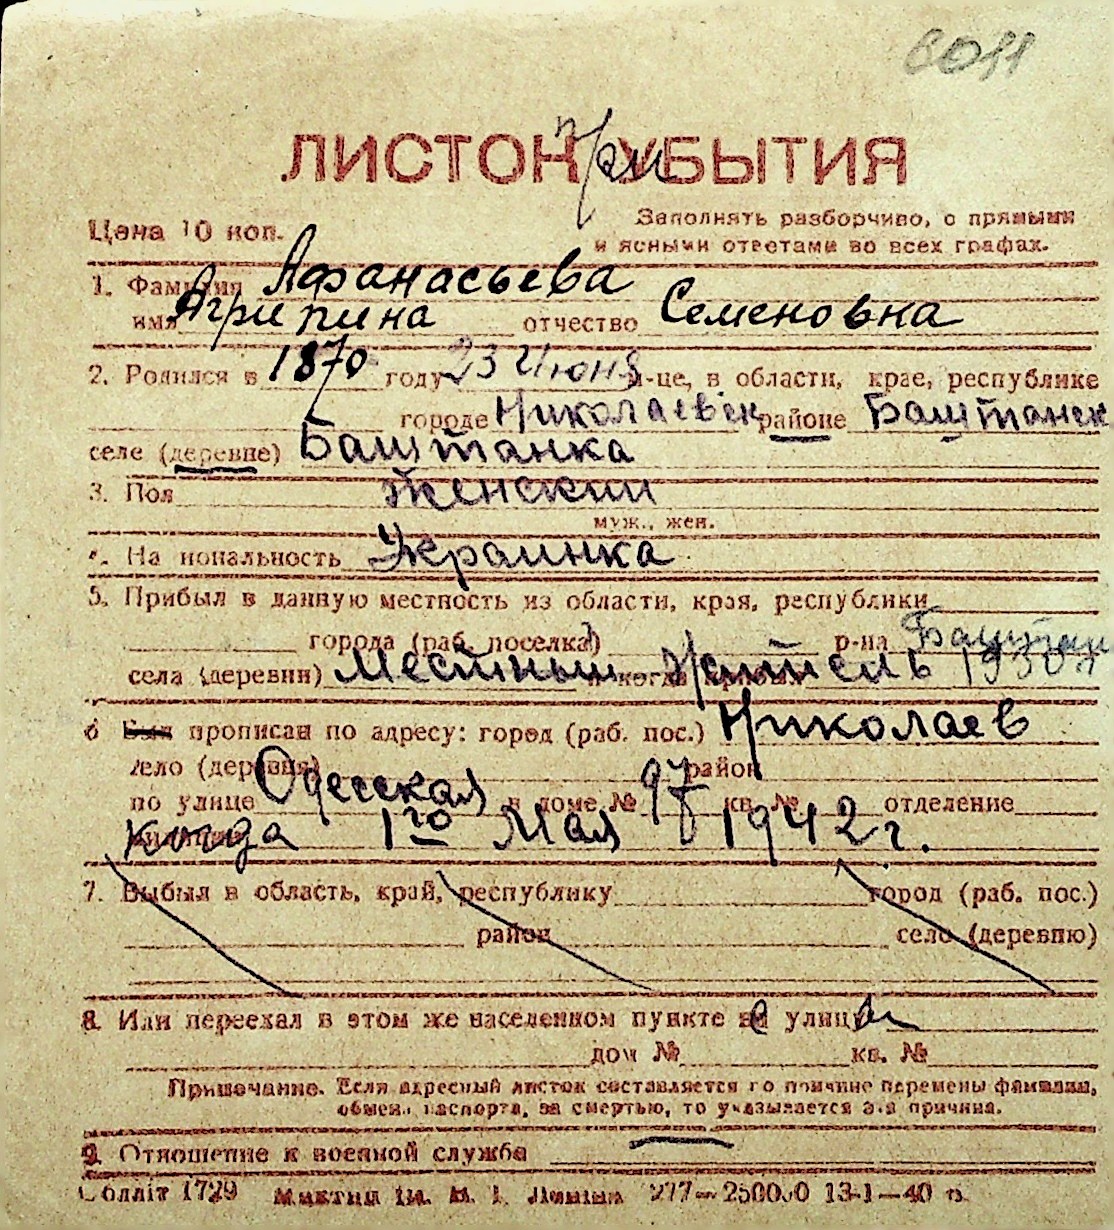 6011
ЛИСТОК при УБЫТИЯ
Цена 10 коп.
Заполнять разборчиво, с прямыми
и ясными ответами во всех графах.
1. Фамилия Афанасьева
имя Агрипина отчество Семеновна
2. Родился в 1870 году 23 Июня м-це, в области, крае, республике
городе Николаевск районе Баштанск
селе (деревне) Баштанка
3. Пол Женский
муж., жен.
4. Национальность Украинка
5. Прибыл в данную местность из области, края, республики
города (раб. поселка) р-на Баштан
села (деревни) Местный житель 1930 г
6 Был прописан по адресу: город (раб. пос.) Николаев
село (деревня) район
по улице Одесская в доме № 97 кв. № отделение
когда 1го Мая 1942 г.
7. Выбыл в область, край, республику город (раб. пос.)
район село (деревню)
8. Или переехал в этом же населенном пункте с улицы
дом № кв. №
Примечание. Если адресный листок составляется по причине перемены фамилии,
обмена паспорта, за смертью, то указывается эта причина.
9. Отношение к военной службе
Облліт 1729 277—25000 13-1—40 г.